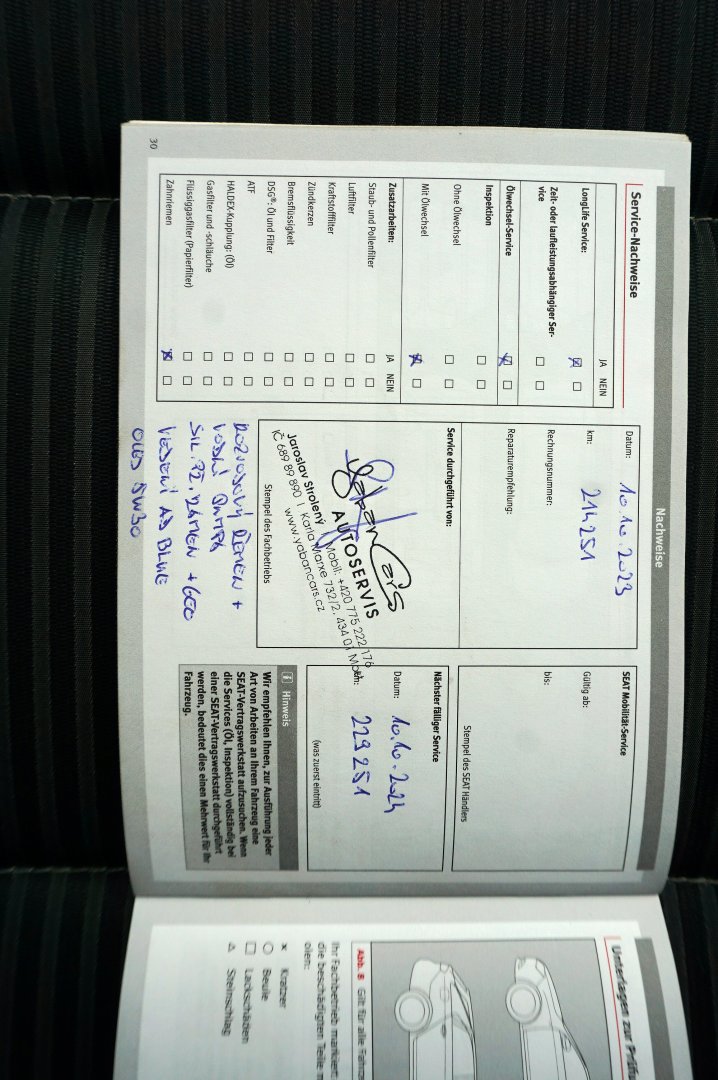 Nachweise
Service-Nachweise
JA NEIN
LongLife Service:
Zeit- oder laufleistungsabhängiger Ser-
vice
Ölwechsel-Service
Inspektion
Ohne Ölwechsel
Mit Ölwechsel
Zusatzarbeiten:
JA NEIN
Staub- und Pollenfilter
Luftfilter
Kraftstofffilter
Zündkerzen
Bremsflüssigkeit
DSG®: Öl und Filter
ATF
HALDEX-Kupplung: (Öl)
Gasfilter und -schläuche
Flüssiggasfilter (Papierfilter)
Zahnriemen
30
Datum: 10.10.2023
km: 214251
Rechnungsnummer:
Reparaturempfehlung:
Service durchgeführt von:
AUTOSERVIS
Jaroslav Strolený Mobil: +420 775 222 176
IČ 689 89 890 | Karla Marxe 732/2, 434 01 Most
www.yabancars.cz
Stempel des Fachbetriebs
ROZVODOVÝ ŘEMEN +
VODNÍ PUMPA
+
VEDENÍ AD BLUE
OLEJ 5W30
SEAT Mobilität-Service
Gültig ab:
bis:
Stempel des SEAT Händlers
Nächster fälliger Service
Datum: 10.10.2024
km: 229251
(was zuerst eintritt)
i Hinweis
Wir empfehlen Ihnen, zur Ausführung jeder
Art von Arbeiten an Ihrem Fahrzeug eine
SEAT-Vertragswerkstatt aufzusuchen. Wenn
die Services (Öl, Inspektion) vollständig bei
einer SEAT-Vertragswerkstatt durchgeführt
werden, bedeutet dies einen Mehrwert für Ihr
Fahrzeug.
Unterlagen zur
Abb. 8 Gilt für alle
Ihr Fachbetrieb markiert
die beschädigten Teile
Kratzer
Beule
Lackschäden
Steinschlag